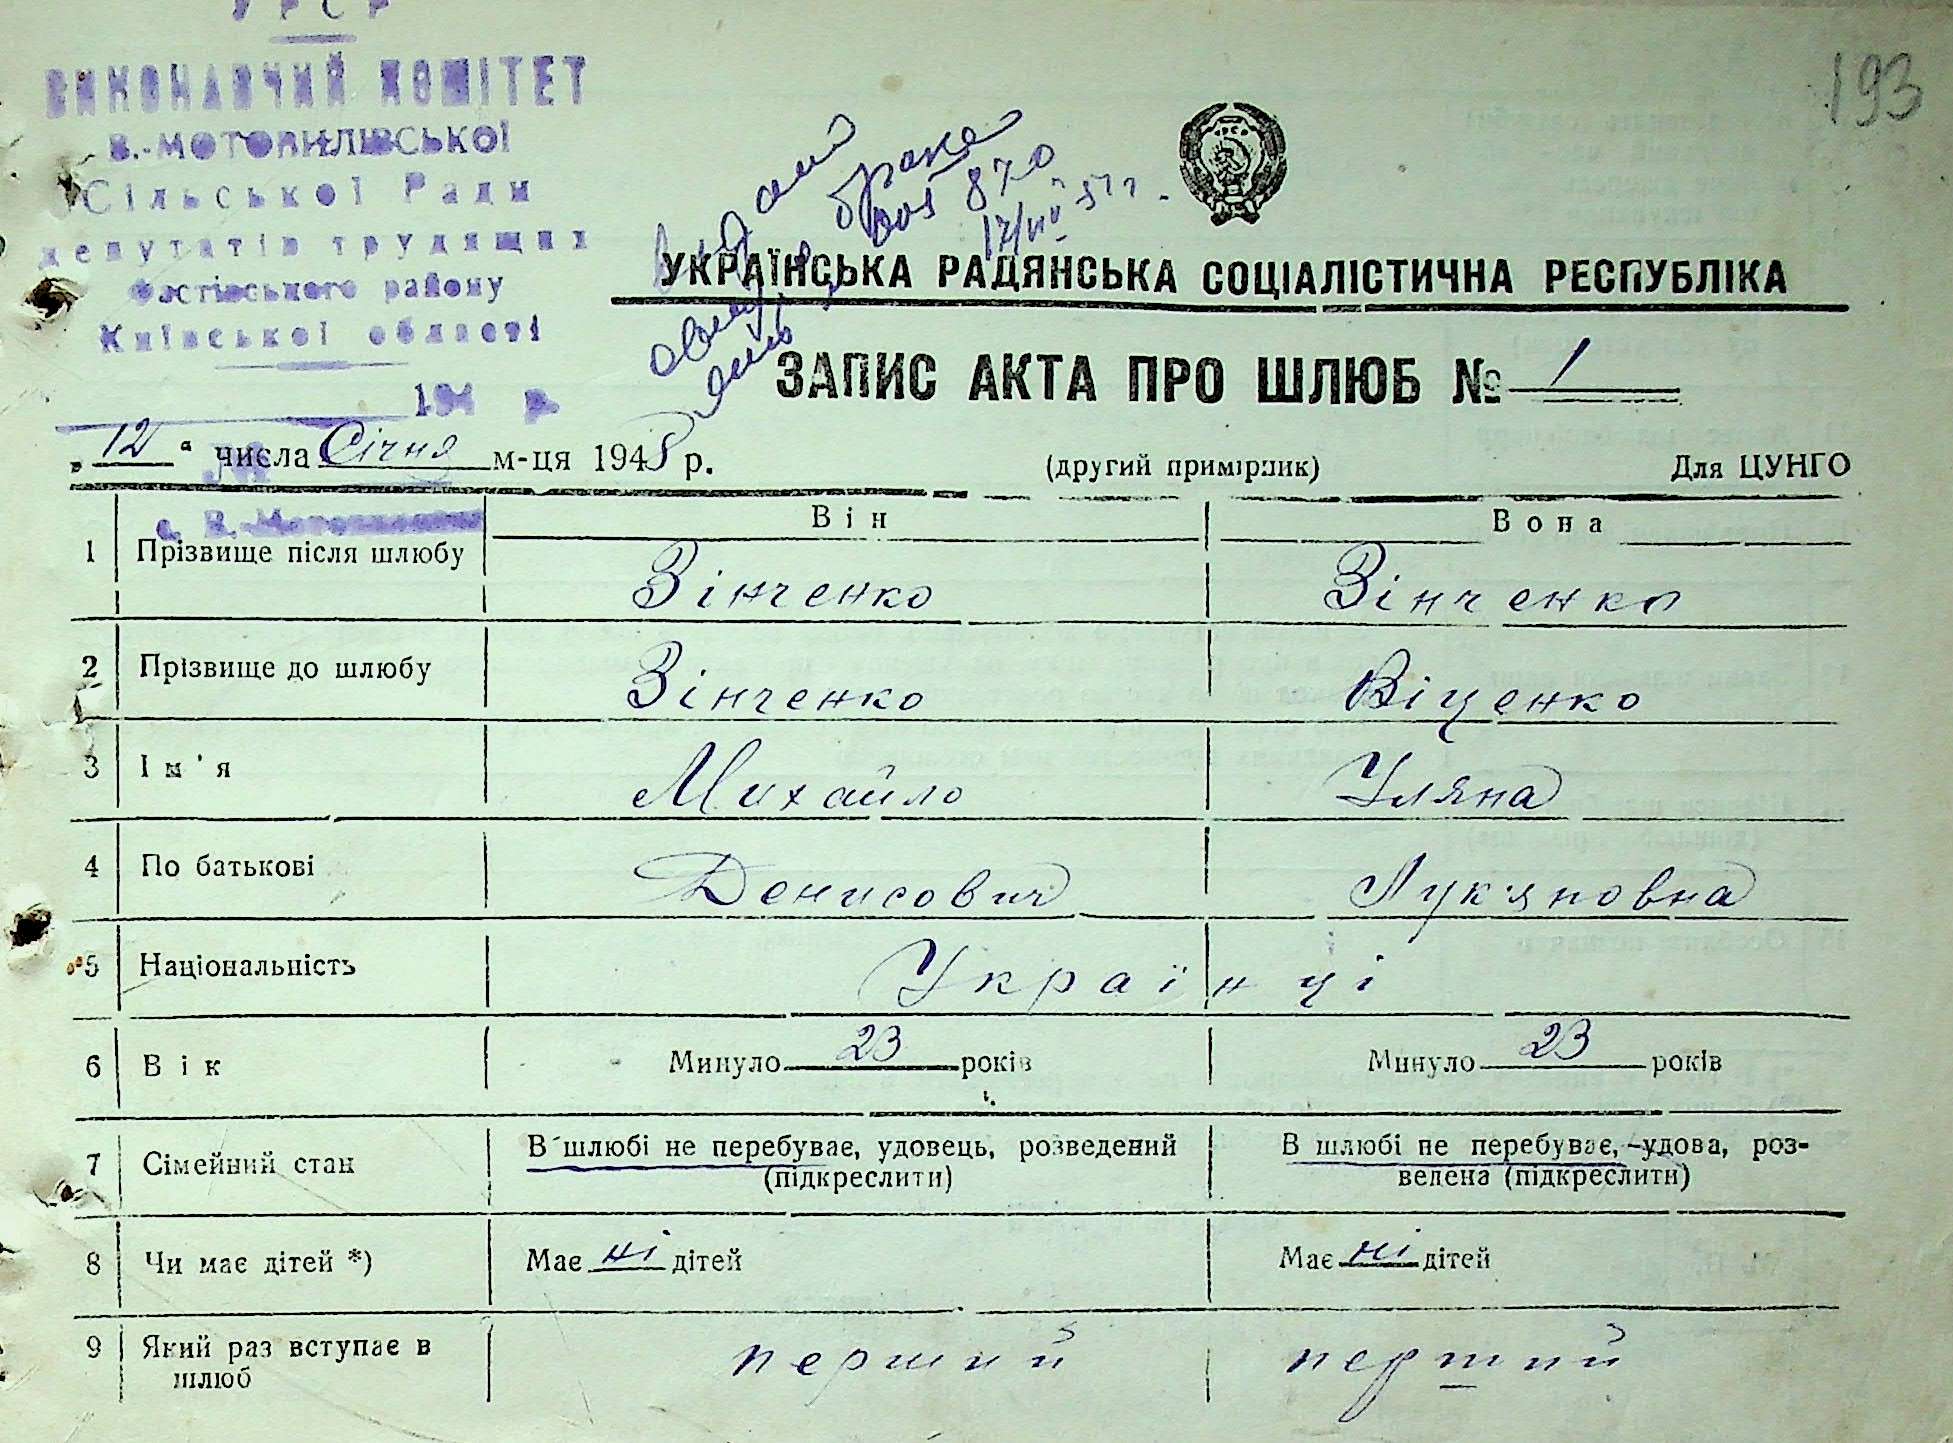 УРСР
ВИКОНАВЧИЙ КОМІТЕТ
В.-МОТОВИЛІВСЬКОЇ
Сільської Ради
депутатів трудящих
Фастівського району
Київської області
194 р.
№
с. В.-Мотовилівка
193
брака
870
17/VII 51 г.
УКРАЇНСЬКА РАДЯНСЬКА СОЦІАЛІСТИЧНА РЕСПУБЛІКА
ЗАПИС АКТА ПРО ШЛЮБ № 1
„12“ числа Січня м-ця 1948 р. (другий примірник) Для ЦУНГО
Він Вона
1 Прізвище після шлюбу Зінченко Зінченко
2 Прізвище до шлюбу Зінченко Віценко
3 Ім'я Михайло Уляна
4 По батькові Денисович Лук'яновна
5 Національність Українці
6 Вік Минуло 23 років Минуло 23 років
7 Сімейний стан В шлюбі не перебуває, удовець, розведений (підкреслити) В шлюбі не перебуває, удова, роз-
ведена (підкреслити)
8 Чи має дітей *) Має ні дітей Має ні дітей
9 Який раз вступає в шлюб перший перший